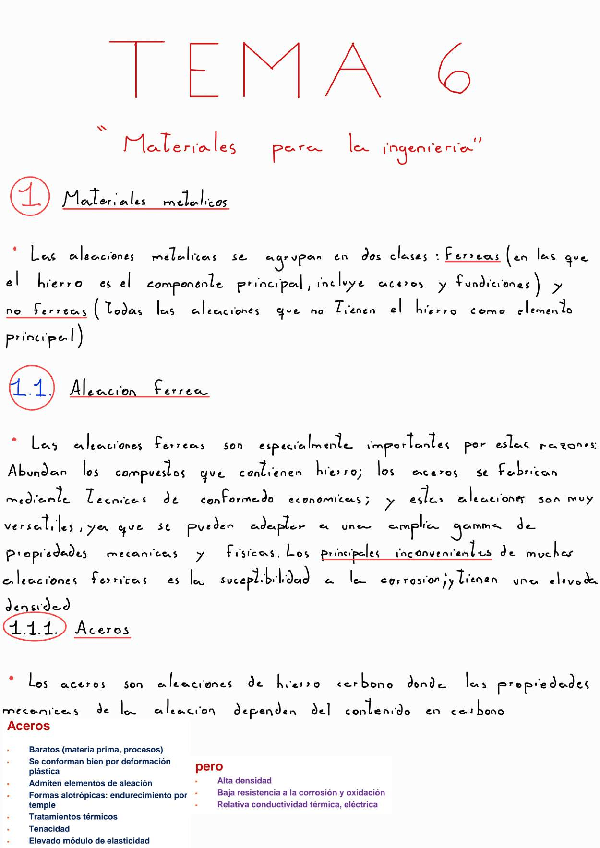 TEMA 6
"Materiales para la ingenieria"
1 Materiales metalicos
• Las aleaciones metalicas se agrupan en dos clases: Ferreas (en las que
el hierro es el componente principal, incluye aceros y fundiciones) y
no ferreas (todas las aleaciones que no tienen el hierro como elemento
principal)
1.1. Aleacion ferrea
• Las aleaciones ferreas son especialmente importantes por estas razones:
Abundan los compuestos que contienen hierro; los aceros se fabrican
mediante tecnicas de conformado economicas; y estas aleaciones son muy
versatiles, ya que se pueden adapter a una amplia gamma de
propiedades mecanicas y fisicas. Los principales inconvenientes de muchas
aleaciones ferricas es la suceptibilidad a la corrosion; y tienen una elevada
densidad
1.1.1. Aceros
• Los aceros son aleaciones de hierro carbono donde las propiedades
mecanicas de la aleacion dependen del contenido en carbono
Aceros
• Baratos (materia prima, procesos)
• Se conforman bien por deformación
plástica
• Admiten elementos de aleación
• Formas alotrópicas: endurecimiento por
temple
• Tratamientos térmicos
• Tenacidad
• Elevado módulo de elasticidad
pero
• Alta densidad
• Baja resistencia a la corrosión y oxidación
• Relativa conductividad térmica, eléctrica